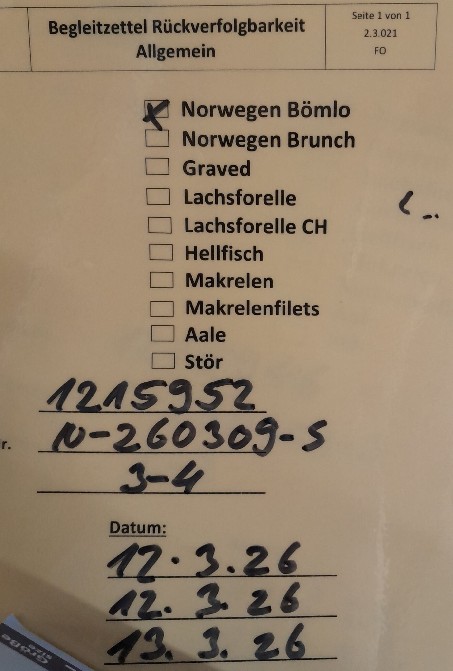 Begleitzettel Rückverfolgbarkeit
Allgemein
Seite 1 von 1
2.3.021
FO
Norwegen Bömlo
Norwegen Brunch
Graved
Lachsforelle
Lachsforelle CH
Hellfisch
Makrelen
Makrelenfilets
Aale
Stör
1215952
r. N-260309-S
3-4
Datum:
12. 3. 26
12. 3. 26
13. 3. 26
Größe